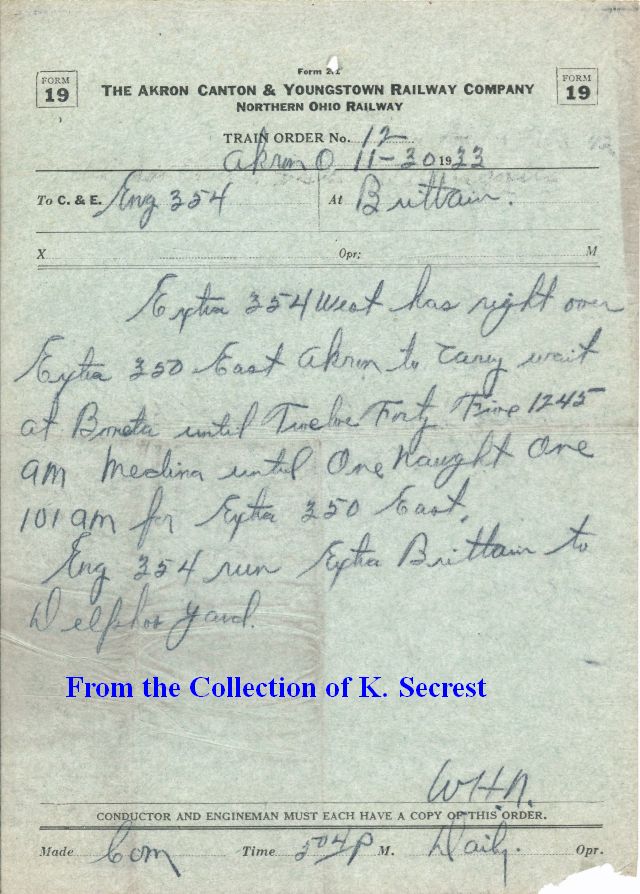 Form 21
FORM
19
THE AKRON CANTON & YOUNGSTOWN RAILWAY COMPANY
NORTHERN OHIO RAILWAY
FORM
19
TRAIN ORDER No. 12
Akron O 11-30 1933
To C. & E. Eng 354 At Brittain.
X Opr; M
Extra 354 West has right over
Extra 350 East Akron to Carey wait
at Boneta until Twelve Forty Five 1245
am Medina until One Naught One
101 am for Extra 350 East.
Eng 354 run Extra Brittain to
Delphos yard.
From the Collection of K. Secrest
W.H.N.
CONDUCTOR AND ENGINEMAN MUST EACH HAVE A COPY OF THIS ORDER.
Made Com Time 504 P M. Daily. Opr.